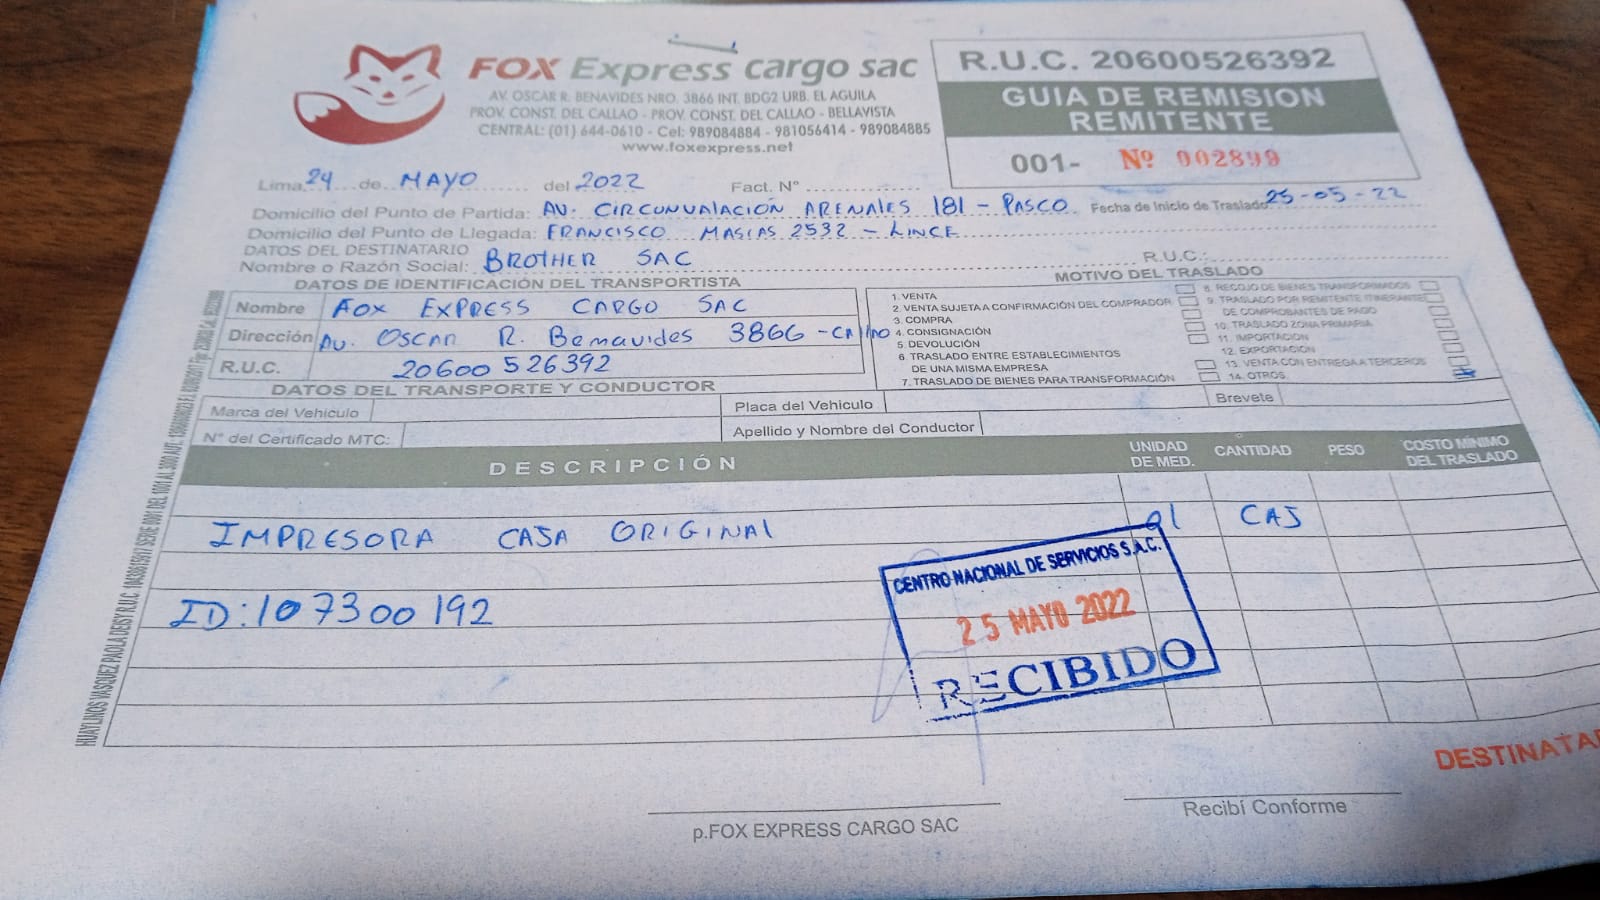 FOX Express cargo sac
AV. OSCAR R. BENAVIDES NRO. 3866 INT. BDG2 URB. EL AGUILA
PROV. CONST. DEL CALLAO - PROV. CONST. DEL CALLAO - BELLAVISTA
CENTRAL: (01) 644-0610 - Cel: 989084884 - 981056414 - 989084885
www.foxexpress.net
R.U.C. 20600526392
GUIA DE REMISION
REMITENTE
001- Nº 002899
Lima, 24 de MAYO del 2022 Fact. N°
Domicilio del Punto de Partida: AV. CIRCUNVALACIÓN ARENALES 181 - PASCO Fecha de Inicio de Traslado 25-05-22
Domicilio del Punto de Llegada: FRANCISCO MASIAS 2532 - LINCE
DATOS DEL DESTINATARIO
Nombre o Razón Social: BROTHER SAC R.U.C.:
DATOS DE IDENTIFICACIÓN DEL TRANSPORTISTA
Nombre FOX EXPRESS CARGO SAC
Dirección Av. OSCAR R. Benavides 3866 -
R.U.C. 20600526392
MOTIVO DEL TRASLADO
1. VENTA
2. VENTA SUJETA A CONFIRMACIÓN DEL COMPRADOR
3. COMPRA
4. CONSIGNACIÓN
5. DEVOLUCIÓN
6. TRASLADO ENTRE ESTABLECIMIENTOS
DE UNA MISMA EMPRESA
7. TRASLADO DE BIENES PARA TRANSFORMACIÓN
8. RECOJO DE BIENES TRANSFORMADOS
9. TRASLADO POR REMITENTE ITINERANTE
DE COMPROBANTES DE PAGO
10. TRASLADO ZONA PRIMARIA
11. IMPORTACIÓN
12. EXPORTACIÓN
13. VENTA CON ENTREGA A TERCEROS
14. OTROS
DATOS DEL TRANSPORTE Y CONDUCTOR
Marca del Vehículo Placa del Vehículo Brevete
N° del Certificado MTC: Apellido y Nombre del Conductor
DESCRIPCIÓN UNIDAD DE MED. CANTIDAD PESO COSTO MÍNIMO DEL TRASLADO
IMPRESORA CAJA ORIGINAL 01 CAJ
ID: 107300192
CENTRO NACIONAL DE SERVICIOS S.A.C.
25 MAYO 2022
RECIBIDO
DESTINATAR
p.FOX EXPRESS CARGO SAC
Recibí Conforme